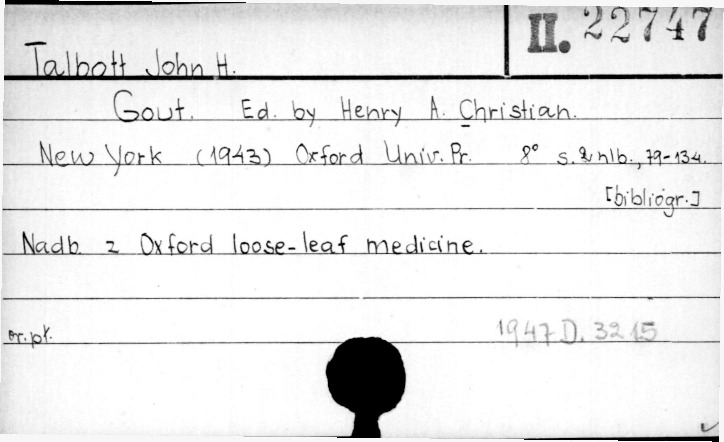 II. 22747
Talbott John H.
Gout. Ed. by Henry A. Christian.
New York (1943) Oxford Univ. Pr. 8° s. 2 nlb., 79-134.
[bibliogr.]
Nadb. z Oxford loose-leaf medicine.
or.pł.
1947 D. 3215